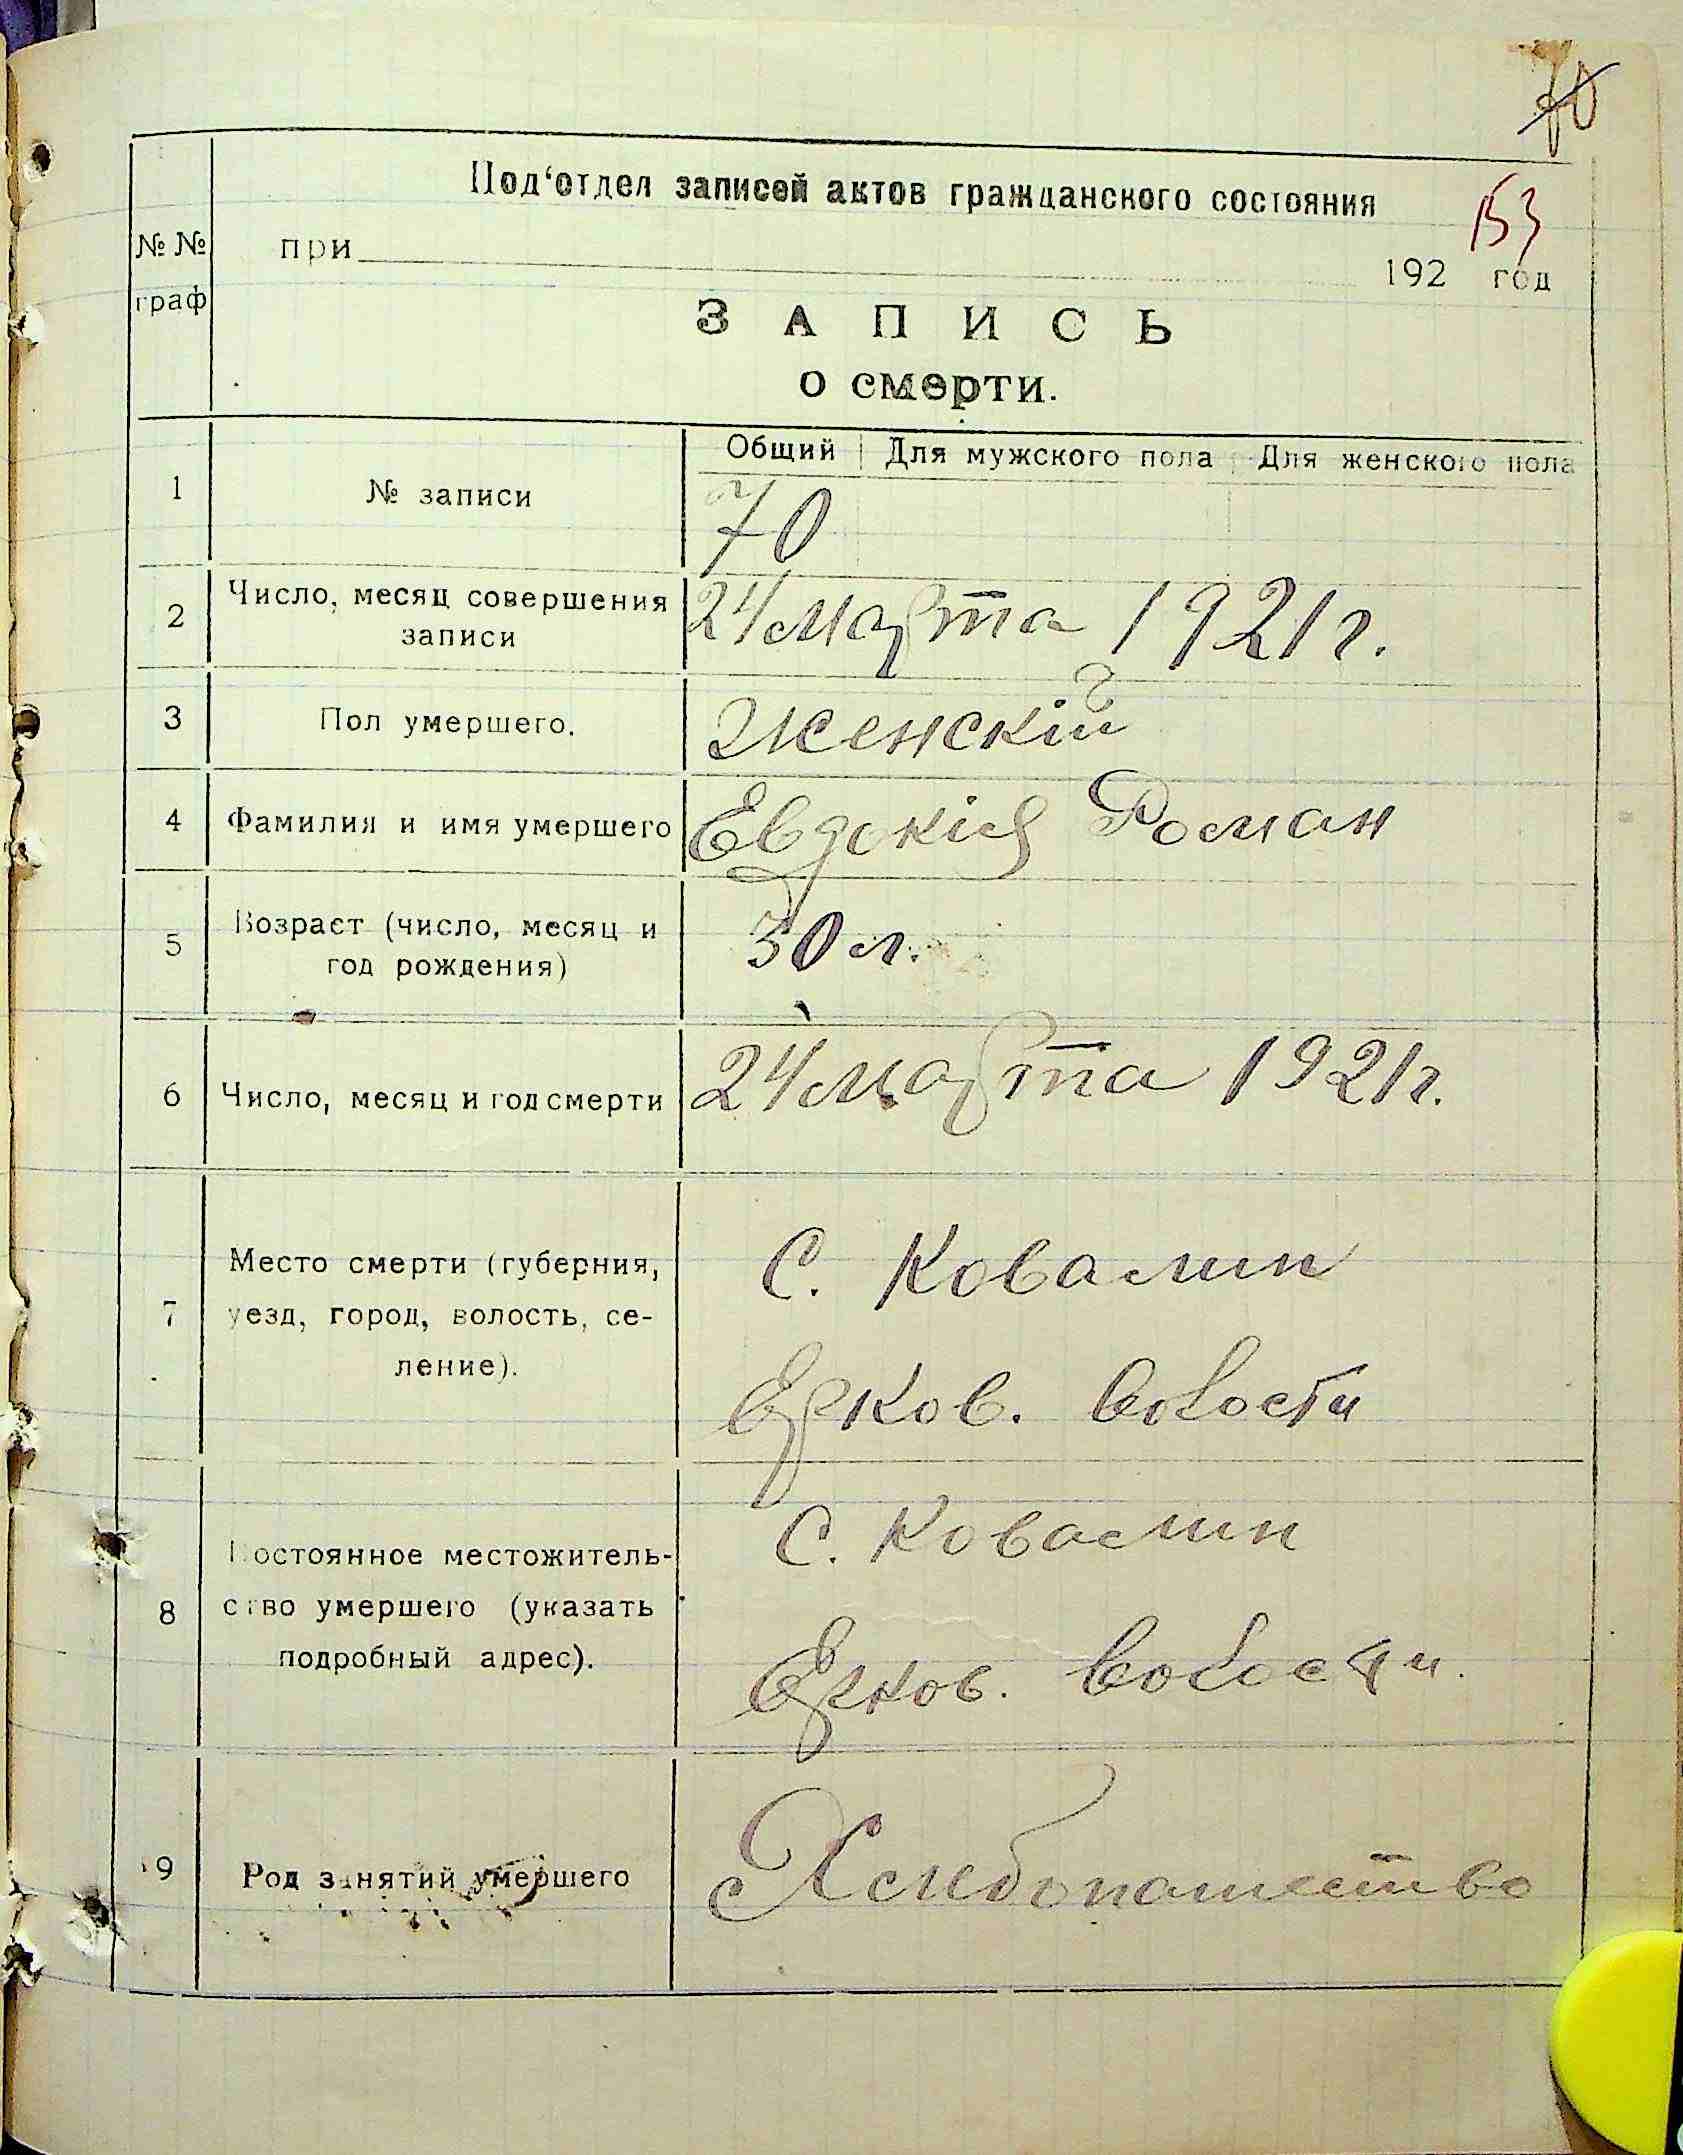 70
Под‘отдел записей актов гражданского состояния
153
№ № граф
при 192 год
ЗАПИСЬ
о смерти.
Общий Для мужского пола Для женского пола
1 № записи 70
2 Число, месяц совершения записи 24 марта 1921 г.
3 Пол умершего. Женскій
4 Фамилия и имя умершего Евдокія Роман
5 Возраст (число, месяц и год рождения) 30 л.
6 Число, месяц и год смерти 24 марта 1921 г.
7 Место смерти (губерния, С. Ковалин
уезд, город, волость, се-
ление). Ерков. волости
8 Постоянное местожитель- С. Ковалин
ство умершего (указать
подробный адрес). Ерков. волости.
9 Род занятий умершего Хлебопашество